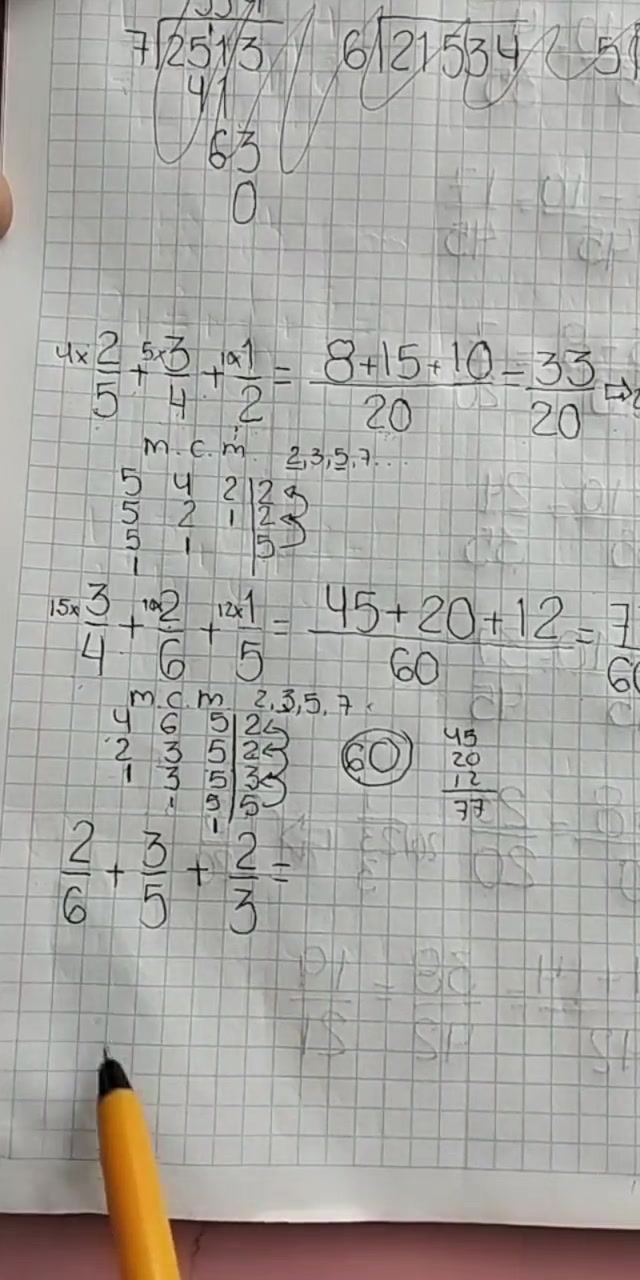 7 2513 6 21534 5
41
63
0
4x 2/5 + 5x 3/4 + 10x 1/2 = 8+15+10/20 = 33/20 ⇨
m.c.m. 2,3,5,7...
5 4 2 | 2
5 2 1 | 2
5 1 | 5
1
15x 3/4 + 10x 2/6 + 12x 1/5 = 45+20+12/60 =
m.c.m 2,3,5,7.
4 6 5 | 2
2 3 5 | 2
1 3 5 | 3
1 5 | 5
1
60
45
20
12
77
2/6 + 3/5 + 2/3 =